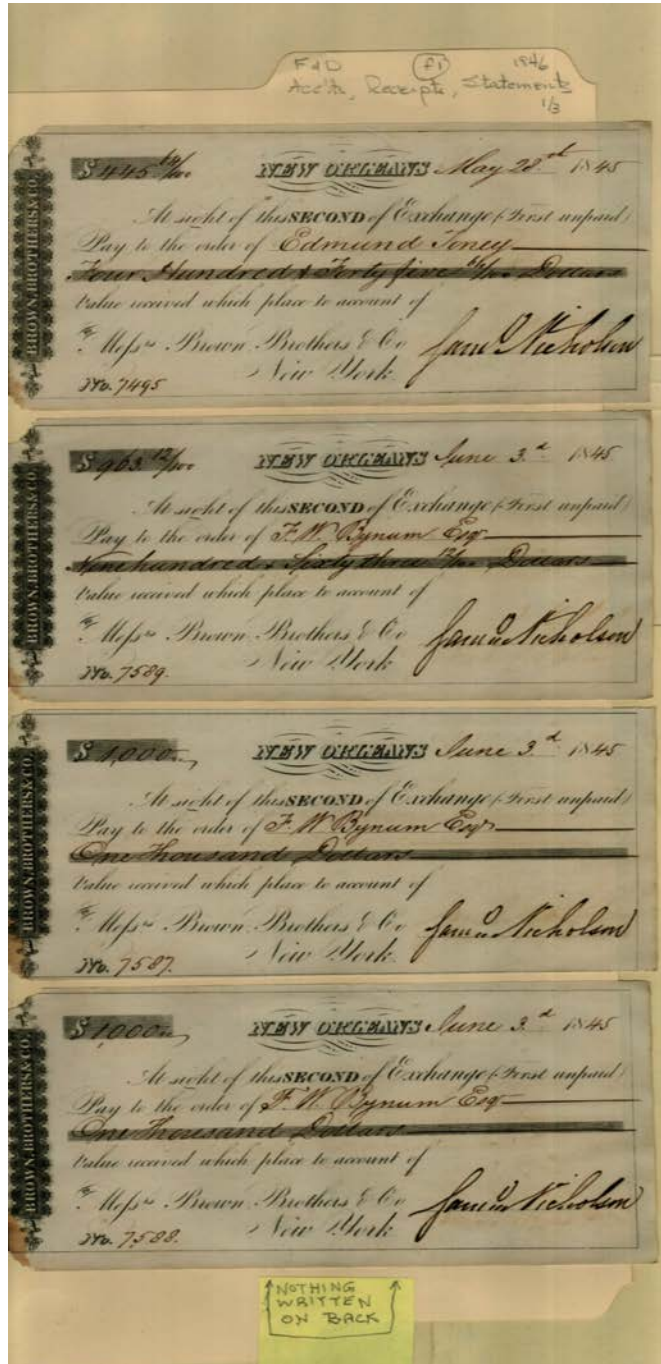 F & D (f1) 1846
Acc'ts, Receipts, Statements
1/3
BROWN, BROTHERS & CO.
$ 445 64/100 NEW ORLEANS May 28.st 1845
At sight of this SECOND of Exchange (First unpaid)
Pay to the order of Edmund Toney
Four Hundred & Forty five 64/100 Dollars
Value received which place to account of
To Messrs Brown Brothers & Co Saml Nicholson
New York
No. 7495
BROWN, BROTHERS & CO.
$ 963 12/100 NEW ORLEANS June 3.d 1845
At sight of this SECOND of Exchange (First unpaid)
Pay to the order of F. W. Bynum Esq
Nine hundred & Sixty three 12/100 Dollars
Value received which place to account of
To Messrs Brown Brothers & Co Saml Nicholson
New York
No. 7589.
BROWN, BROTHERS & CO.
$ 1,000 NEW ORLEANS June 3.d 1845
At sight of this SECOND of Exchange (First unpaid)
Pay to the order of F. W. Bynum Esqr
One Thousand Dollars
Value received which place to account of
To Messrs Brown Brothers & Co Saml Nicholson
New York
No. 7587.
BROWN, BROTHERS & CO.
$ 1,000 NEW ORLEANS June 3.d 1845
At sight of this SECOND of Exchange (First unpaid)
Pay to the order of F. W. Bynum Esq
One Thousand Dollars
Value received which place to account of
To Messrs Brown Brothers & Co Saml Nicholson
New York
No. 7588.
NOTHING
WRITTEN
ON BACK